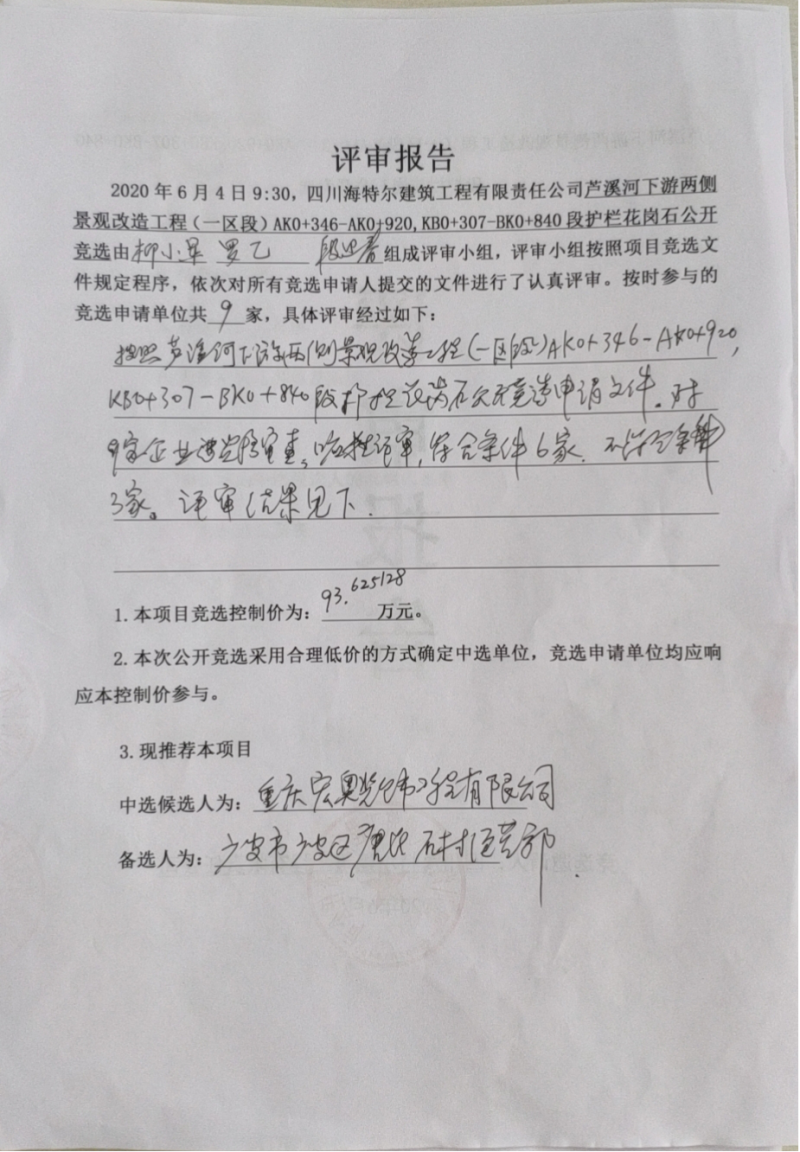 评审报告
2020年6月4日9:30，四川海特尔建筑工程有限责任公司芦溪河下游两侧
景观改造工程（一区段）AK0+346-AK0+920,KB0+307-BK0+840段护栏花岗石公开
竞选由柳小军 罗乙 组成评审小组，评审小组按照项目竞选文
件规定程序，依次对所有竞选申请人提交的文件进行了认真评审。按时参与的
竞选申请单位共9家，具体评审经过如下：
按照芦溪河下游两侧景观改造工程(一区段)AK0+346-AK0+920,
KB0+307-BK0+840段护栏花岗石公开竞选申请文件.对
9家企业进行审查、评审,符合条件6家.不符合条件
3家。评审结果见下.
1.本项目竞选控制价为：93.625128万元。
2.本次公开竞选采用合理低价的方式确定中选单位，竞选申请单位均应响
应本控制价参与。
3.现推荐本项目
中选候选人为：重庆宏奥装饰工程有限公司
备选人为：石材经营部.